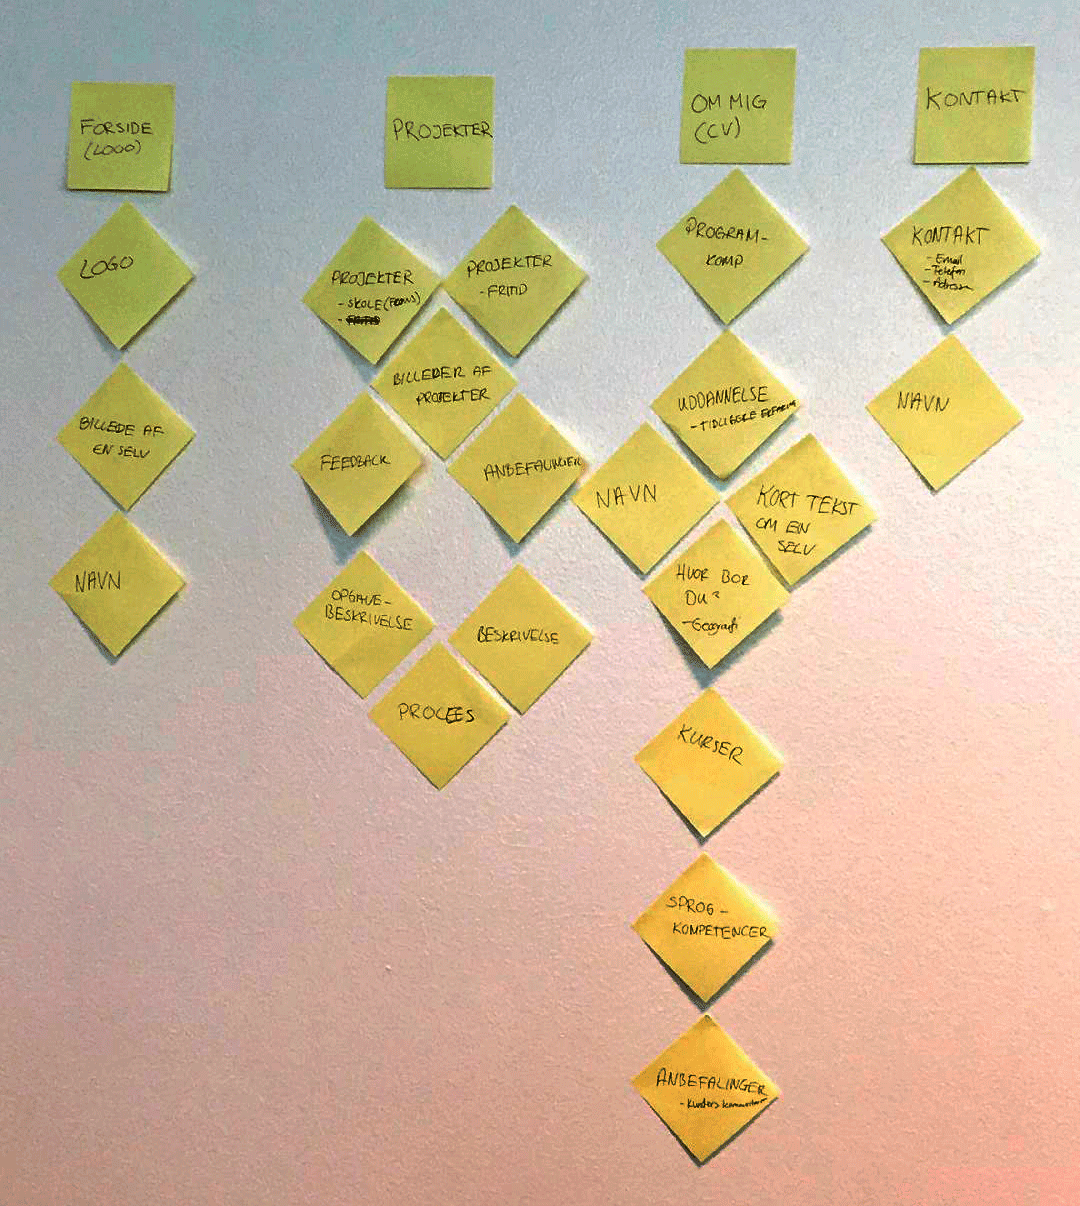 FORSIDE
(LOGO)
LOGO
BILLEDE AF
EN SELV
NAVN
PROJEKTER
PROJEKTER
- SKOLE (
-
PROJEKTER
- FRITID
BILLEDER AF
PROJEKTER
FEEDBACK
ANBEFALINGER
OPGAVE-
BESKRIVELSE
BESKRIVELSE
PROCEES
OM MIG
(CV)
PROGRAM-
KOMP
UDDANNELSE
- TIDLIGERE ERFARING
NAVN
KORT TEKST
OM EN
SELV
HVOR BOR
DU?
- Geografi
KURSER
SPROG-
KOMPETENCER
ANBEFALINGER
- Kunders kommentarer
KONTAKT
KONTAKT
- Email
- Telefon
- Adresse
NAVN